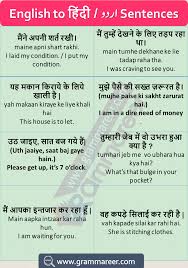 English to हिंदी / اردو Sentences
मैंने अपनी शर्त रखी।
maine apni shart rakhi.
I laid my condition. / I put my
condition.
मैं तुम्हें देखने के लिए तड़प रहा
था।
main tumhe dekhane ke lie
tadap raha tha.
I was craving to see you.
यह मकान किराये के लिये
खाली है।
yah makaan kiraye ke liye khali
hai.
This house is to let.
मुझे पैसे की सख्त जरूरत है।
(mujhe paise ki sakht zarurat
hai.)
I am in a dire need of money
उठ जाइए, सात बज गये हैं।
(Uth jaaiye, saat baj gaye
hain.)
Please get up, it's 7 o'clock.
तुम्हारी जेब में वो उभरा हुआ
क्या है ?
tumhari jeb me wo ubhara hua
kya hai?
What's that bulge in your pocket?
मैं आपका इन्तजार कर रहा हूँ।
Main aapka intzaar kar raha
hun.
I am waiting for you.
वह कपड़े सिलाई कर रही है।
vah kapade silai kar rahi hai.
She is stitching clothes.
www.grammareer.com